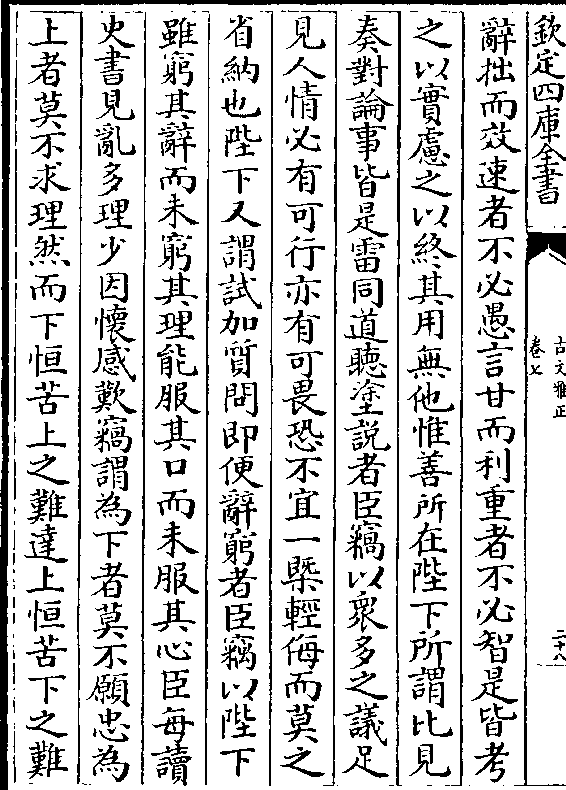 欽定四庫全書
古文雅正
卷七
二十八
辭拙而效速者不必愚言甘而利重者不必智是皆考
之以實慮之以終其用無他惟善所在陛下所謂比見
奏對論事皆是雷同道聽塗説者臣竊以衆多之議足
見人情必有可行亦有可畏恐不宜一槩輕侮而莫之
省納也陛下又謂試加質問即便辭窮者臣竊以陛下
雖窮其辭而未窮其理能服其口而未服其心臣每讀
史書見亂多理少因懷感歎竊謂為下者莫不願忠為
上者莫不求理然而下恒苦上之難達上恒苦下之難